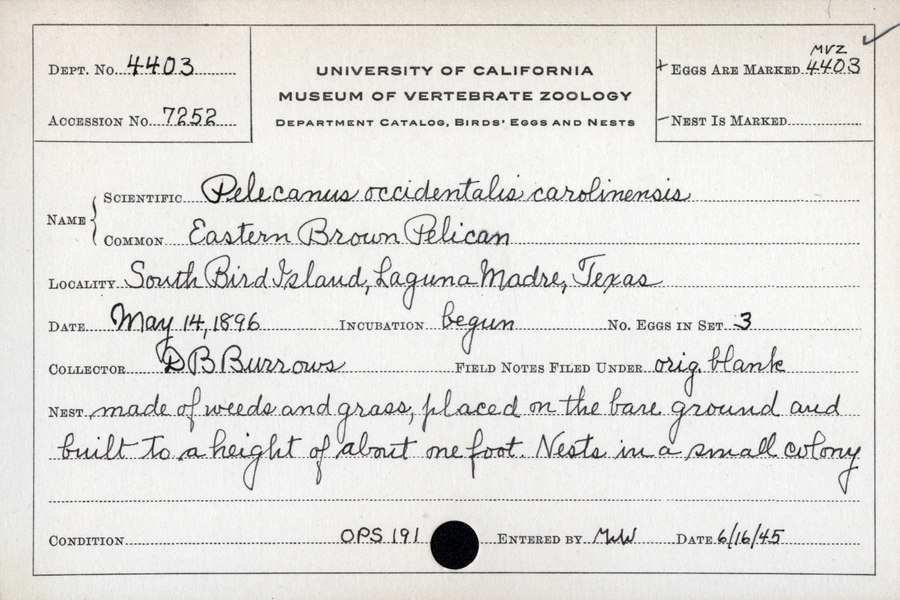 DEPT. NO. 4403
ACCESSION NO. 7252
UNIVERSITY OF CALIFORNIA
MUSEUM OF VERTEBRATE ZOOLOGY
DEPARTMENT CATALOG, BIRDS' EGGS AND NESTS
MVZ
+ EGGS ARE MARKED 4403
– NEST IS MARKED
NAME
SCIENTIFIC Pelecanus occidentalis carolinensis
COMMON Eastern Brown Pelican
LOCALITY South Bird Island, Laguna Madre, Texas
DATE May 14, 1896 INCUBATION begun NO. EGGS IN SET 3
COLLECTOR D B Burrows FIELD NOTES FILED UNDER orig. blank
NEST made of weeds and grass, placed on the bare ground and
built to a height of about one foot. Nests in a small colony
CONDITION OPS 191 ENTERED BY MWW DATE 6/16/45